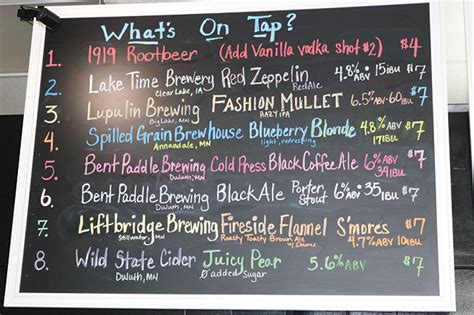 What's On Tap?
1. 1919 Rootbeer (Add Vanilla vodka shot $2) $4
2. Lake Time Brewery Red Zeppelin 4.8% ABV 15 IBU $7
Clear Lake, IA Red Ale
3. Lupulin Brewing Fashion Mullet 6.5% ABV 60 IBU $7
Big Lake, MN Hazy IPA
4. Spilled Grain Brewhouse Blueberry Blonde 4.8% ABV $7
Annandale, MN light, refreshing 11 IBU
5. Bent Paddle Brewing Cold Press Black Coffee Ale 6% ABV $7
Duluth, MN 34 IBU
6. Bent Paddle Brewing Black Ale Porter Stout 6% ABV 35 IBU $7
Duluth, MN
7. Liftbridge Brewing Fireside Flannel S'mores $7
Stillwater, MN Roasty Toasty Brown Ale w/ S'mores 4.7% ABV 10 IBU
8. Wild State Cider Juicy Pear 5.6% ABV $7
Duluth, MN 0 added sugar